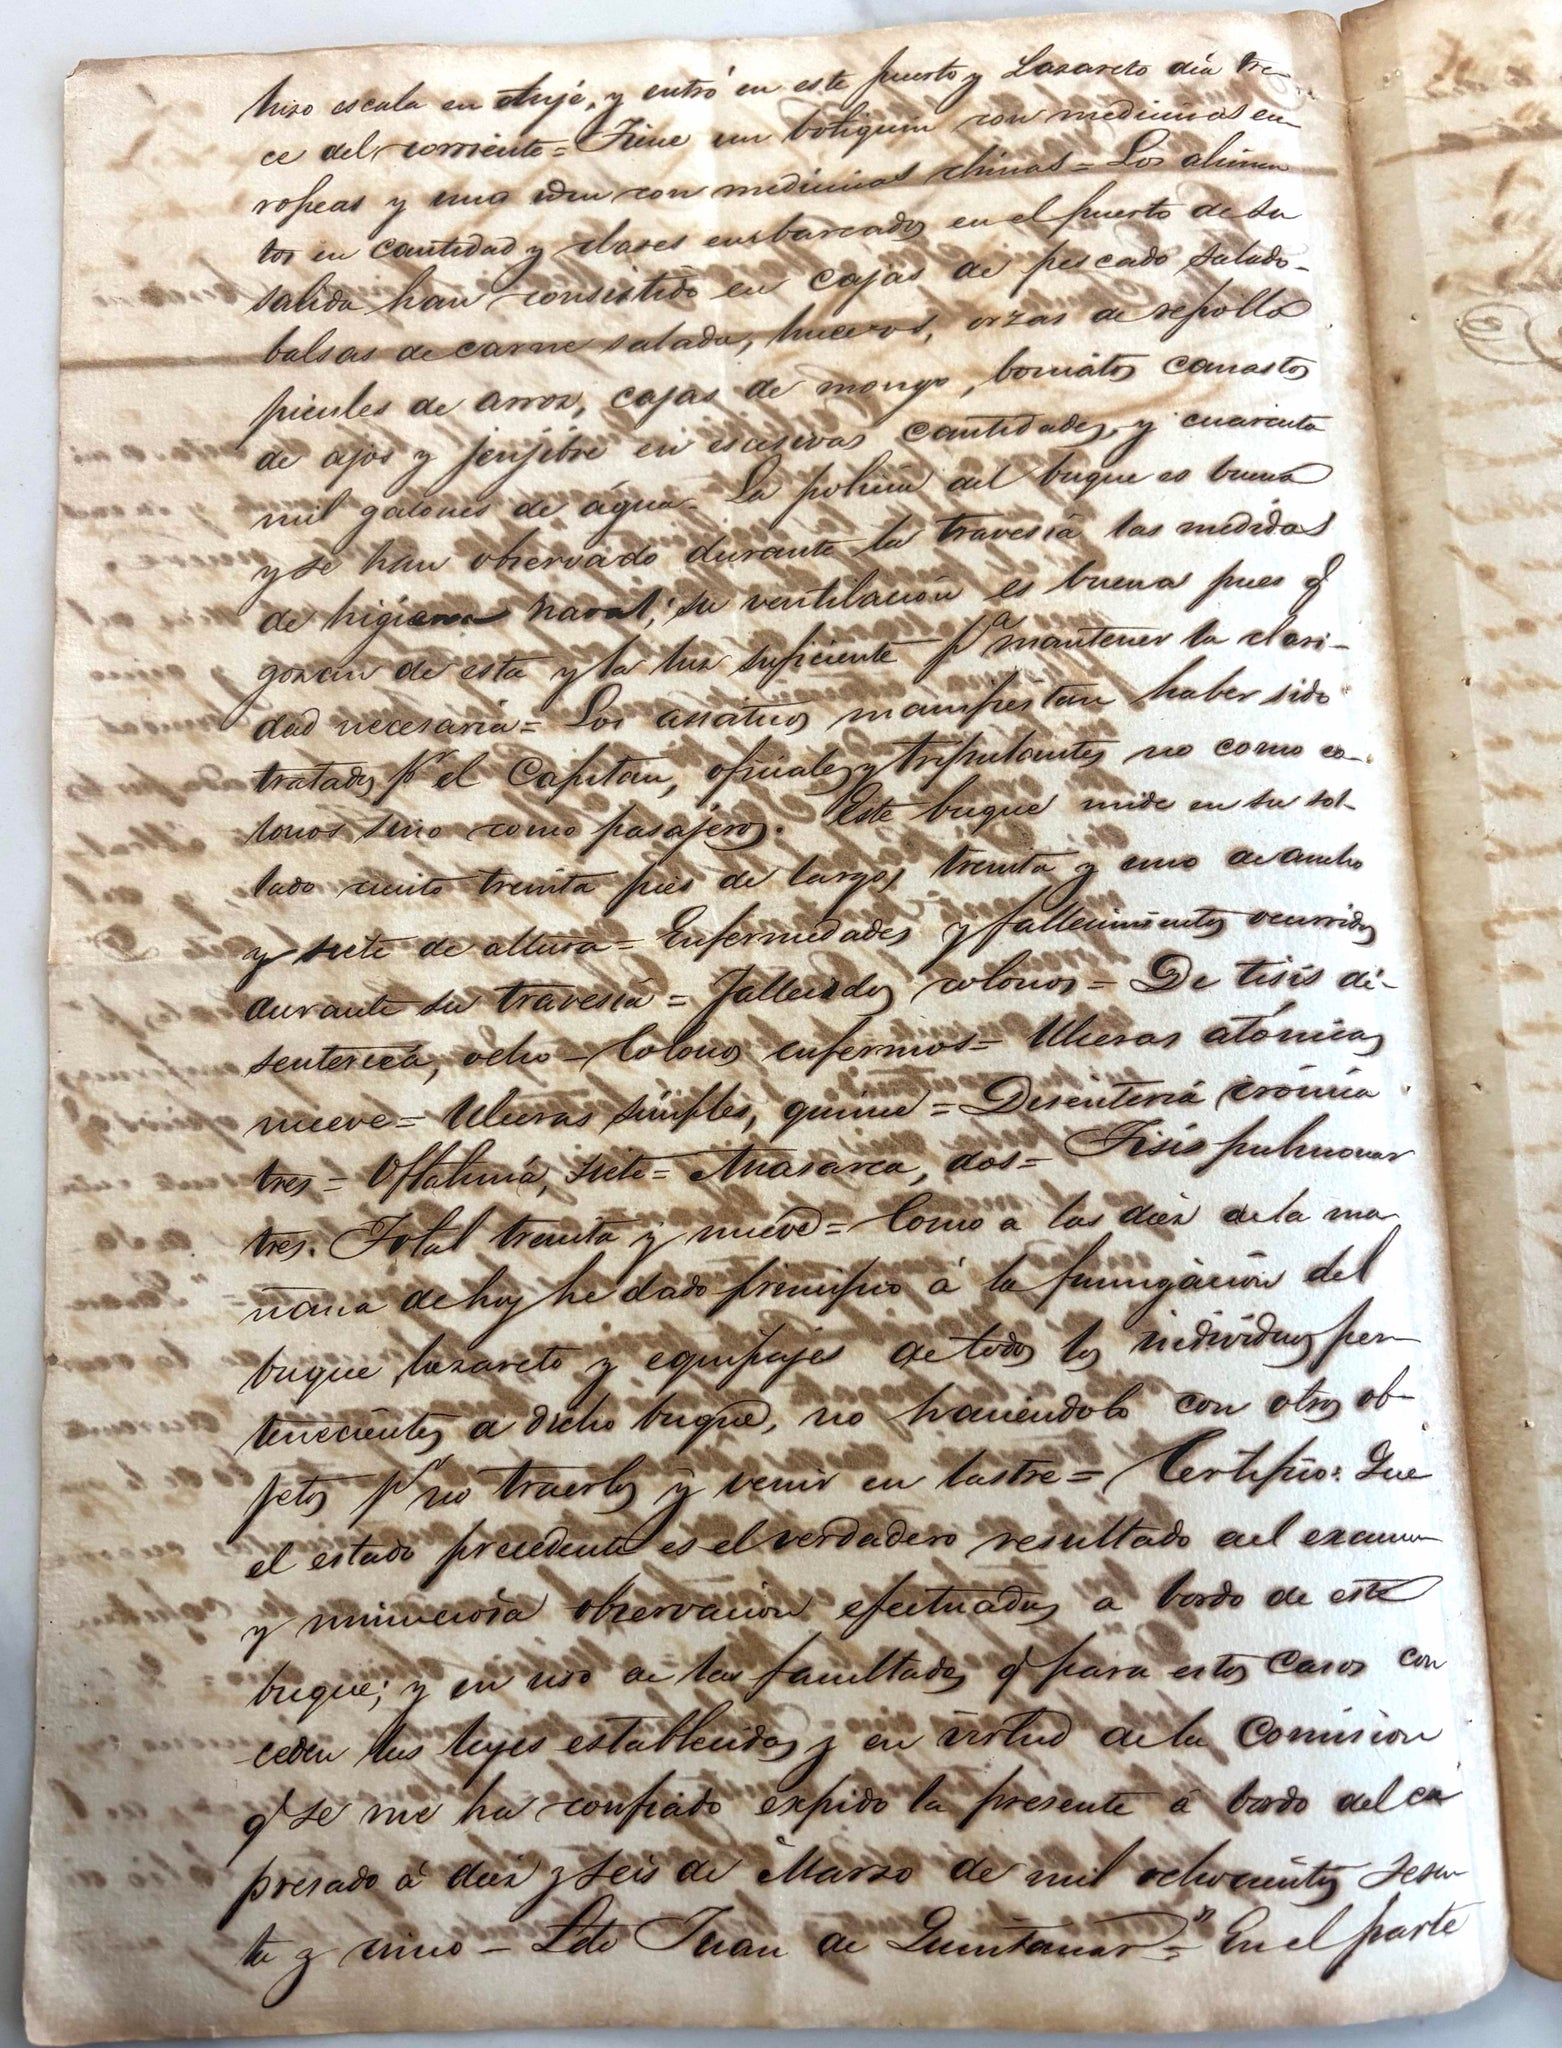 hizo escala en Anjé, y entró en este puerto y Lazareto dia tre-
ce del corriente = Tiene un botiquin con medicinas eu-
ropeas y una idem con medicinas chinas = Los alimen
tos en cantidad y clases embarcados en el puerto de su
salida han consistido en cajas de pescado salado-
balsas de carne salada, huevos, orzas de repollo
piculs de arroz, cajas de mongo, boniatos canastos
de ajos y jenjibre en escesivas cantidades, y cuarenta
mil galones de água - La policia del buque es buena
y se han observado durante la travesía las medidas
de higiene naval; su ventilacion es buena pues q
gozan de esta y la luz suficiente pa mantener la clari-
dad necesaria = Los asiaticos manifiestan haber sido
tratados pr el Capitan, oficiales y tripulantes no como co-
lonos sino como pasajeros. Este buque mide en su sol-
lado ciento treinta pies de largo, treinta y uno de ancho
y siete de altura = Enfermedades y fallecimientos ocurridos
durante su travesia = Fallecidos colonos = De tisis di-
senterica, ocho - Colonos enfermos = Ulceras atónicas
nueve = Ulceras simples, quince = Disenteria crónica
tres = Oftalmia, siete = Anasarca, dos = Tisis pulmonar
tres. Total treinta y nueve = Como a las diez de la ma
ñana de hoy he dado principio á la fumigacion del
buque lazareto y equipajes de todos los individuos per-
tenecientes a dicho buque, no haciendolo con otros ob-
jetos pr no traerlos y venir en lastre = Certifico: Que
el estado precedente es el verdadero resultado del examen
y minuciosa observacion efectuados a bordo de este
buque; y en uso de las facultades q para estos casos con
ceden las leyes establecidas y en virtud de la Comision
q se me ha confiado expido la presente á bordo del ex
presado á diez y seis de Marzo de mil ochocientos sesen
ta y cinco - Ldo Juan de Quintanar" = En el parte